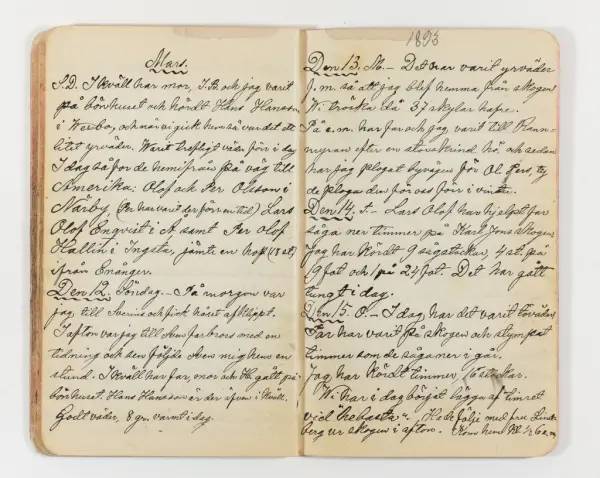 Mars.
S.D. I kväll har mor, J.B. och jag varit
på bönhuset och hördt Hans Hansson
i Werbo, och när vi gick hem så var det ett
litet yrväder. Warit trefligt väder för i dag
I dag så for de hemifrån på väg till
Amerika: Olof och Per Olsson i
Närby, (Per har varit der förr en tid) Lars
Olof Enqvist i A. samt Per Olof
Hallin i Ingsta, jämte en hop (13 st)
ifrån Enånger.
Den 12. Söndag. - På morgon var
jag till Sverins och fick håret afklippt.
I afton var jag till farbrors med en
tidning och sen följde Sven mig hem en
stund. I kväll har far, mor och gått på
bönhuset. Hans Hansson är der äfven i kväll.
Godt väder, 8 gr. varmt i dag.
1893
Den 13. M. - Det har varit yrväder
f.m. så att jag blef hemma från skogen
Wi tröska då 37 skylar hafre.
På e.m. har far och jag varit till Rann-
myran efter en stor skrind hö, och sedan
har jag plogat byvägen för Ol. Pers, ty
de ploga den för oss förr i vinter.
Den 14. T. - Lars Olof har hjelpt far
såga ner timmer på Karl Jons skogen.
Jag har kördt 9 sågstockar, 4 st. på
19 fot och 1 på 24 fot. Det har gått
tungt i dag.
Den 15. O. - I dag har det varit töväder.
Far har varit på skogen och stympat
timmer som de sågade ner i går.
Jag har kördt timmer, 10 stockar.
Wi har i dag börjat lägga af timret
vid "hebasta". Hede följe med fru Lind-
berg ur skogen i afton. Kom hem kl. ½ 6 e.m.